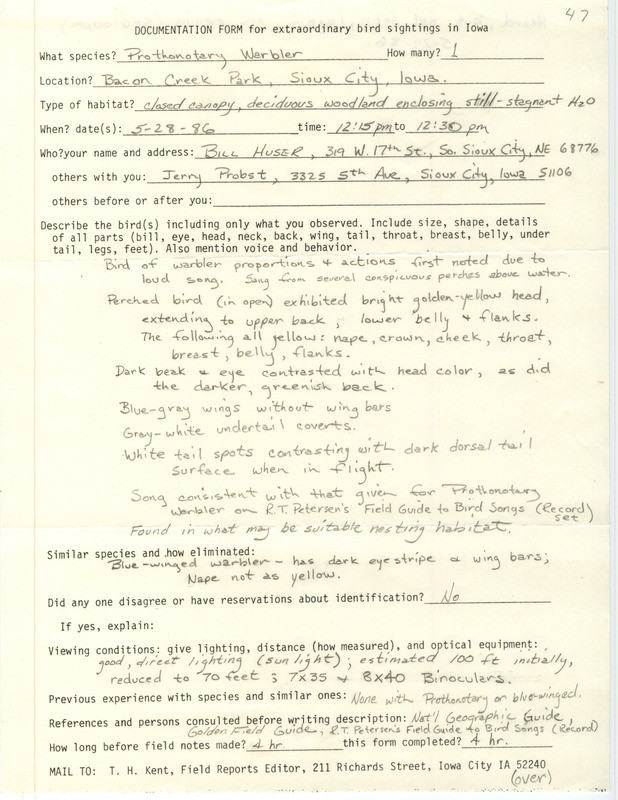 47
DOCUMENTATION FORM for extraordinary bird sightings in Iowa
What species? Prothonotary Warbler How many? 1
Location? Bacon Creek Park, Sioux City, Iowa.
Type of habitat? closed canopy, deciduous woodland enclosing still-stagnent H2O
When? date(s): 5-28-86 time: 12:15 pm to 12:30 pm
Who? your name and address: BILL HUSER, 319 W. 17th St., So. Sioux City, NE 68776
others with you: Jerry Probst, 3325 5th Ave, Sioux City, Iowa 51106
others before or after you:
Describe the bird(s) including only what you observed. Include size, shape, details
of all parts (bill, eye, head, neck, back, wing, tail, throat, breast, belly, under
tail, legs, feet). Also mention voice and behavior.
Bird of warbler proportions & actions first noted due to
loud song. Sang from several conspicuous perches above water.
Perched bird (in open) exhibited bright golden-yellow head,
extending to upper back, lower belly & flanks.
The following all yellow: nape, crown, cheek, throat,
breast, belly, flanks.
Dark beak & eye contrasted with head color, as did
the darker, greenish back.
Blue-gray wings without wing bars
Gray-white undertail coverts.
White tail spots contrasting with dark dorsal tail
surface when in flight.
Song consistent with that given for Prothonotary
Warbler on R.T. Petersen's Field Guide to Bird Songs (Record)
set
Found in what may be suitable nesting habitat.
Similar species and how eliminated:
Blue-winged warbler - has dark eyestripe & wing bars;
Nape not as yellow.
Did any one disagree or have reservations about identification? No
If yes, explain:
Viewing conditions: give lighting, distance (how measured), and optical equipment:
good, direct lighting (sun light); estimated 100 ft initially,
reduced to 70 feet; 7x35 & 8x40 Binoculars.
Previous experience with species and similar ones: None with Prothonotary or blue-winged.
References and persons consulted before writing description: Nat'l Geographic Guide,
Golden Field Guide, R.T. Petersen's Field Guide to Bird Songs (Record)
How long before field notes made? 4 hr. this form completed? 4 hr.
MAIL TO: T. H. Kent, Field Reports Editor, 211 Richards Street, Iowa City IA 52240
(over)